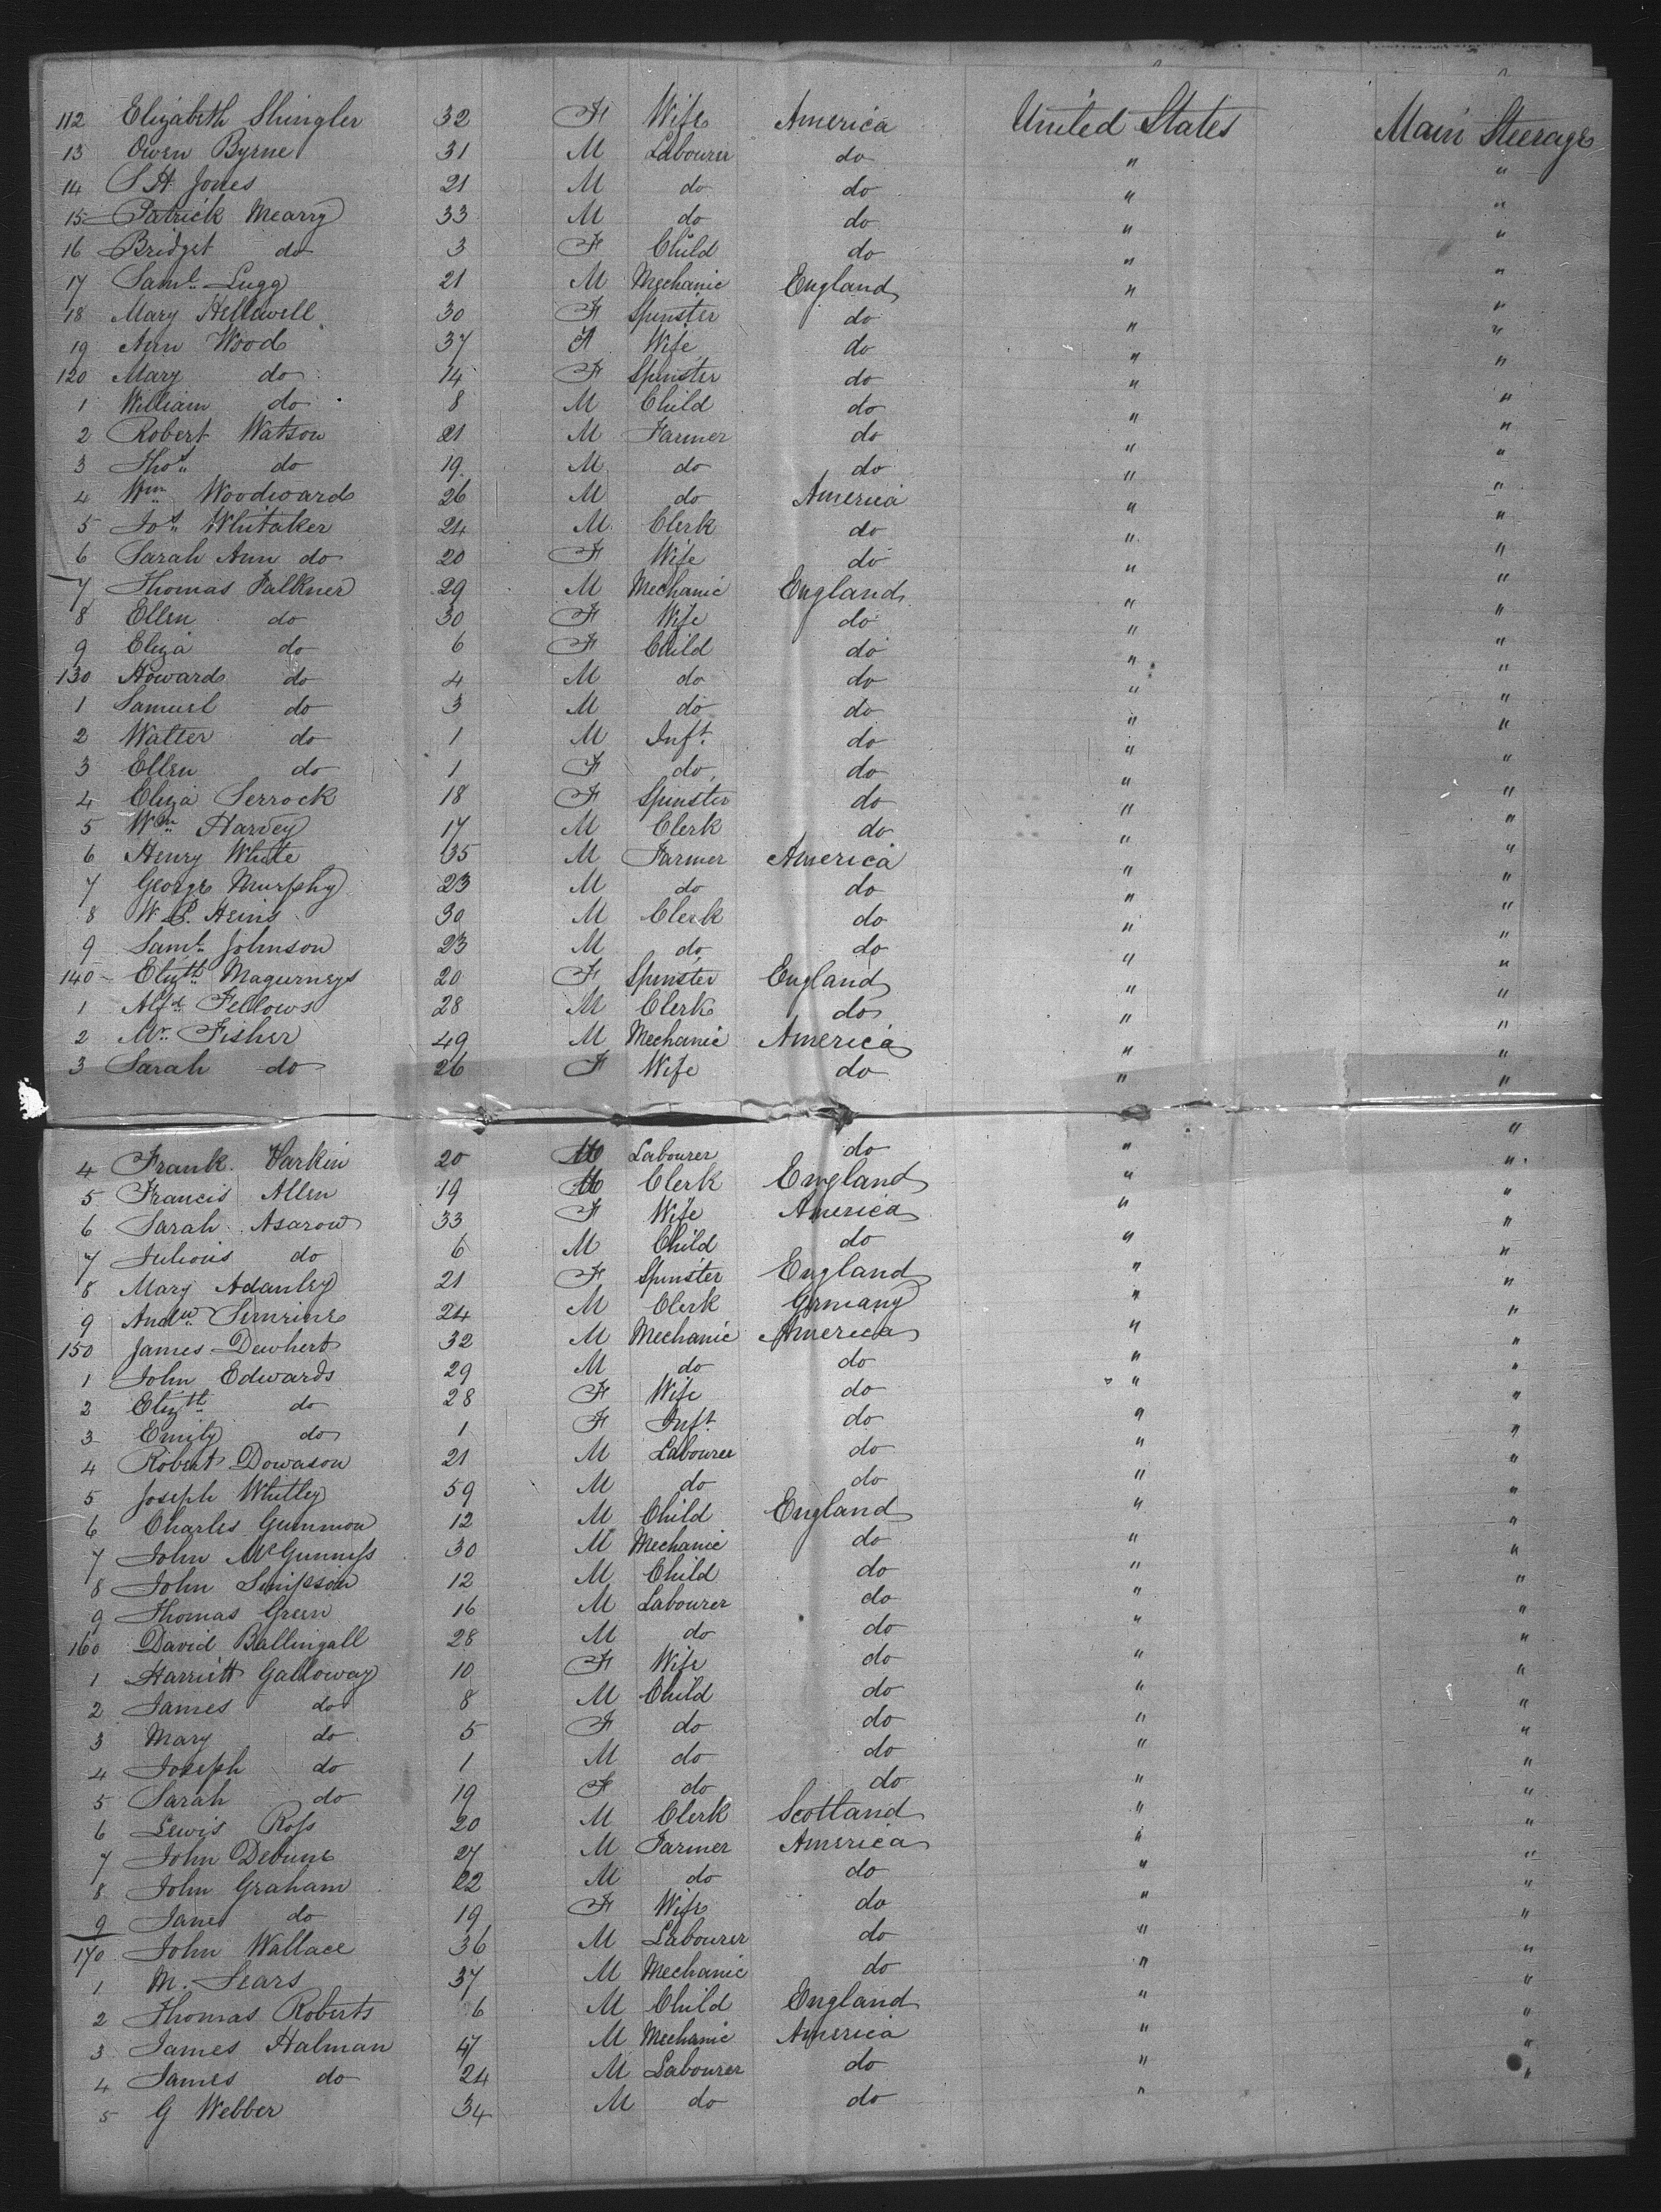 112 Elizabeth Shingler 32 F Wife America United States Main Steerage
13 Owen Byrne 31 M Labourer do " "
14 S H Jones 21 M do do " "
15 Patrick Mearry 33 M do do " "
16 Bridget do 3 F Child do " "
17 Saml. Lugg 21 M Mechanic England " "
18 Mary Hellewell 30 F Spinster do " "
19 Ann Wood 37 F Wife do " "
120 Mary do 14 F Spinster do " "
1 William do 8 M Child do " "
2 Robert Watson 21 M Farmer do " "
3 Thos. do 19 M do do " "
4 Wm. Woodward 26 M do America " "
5 Jos. Whitaker 24 M Clerk do " "
6 Sarah Ann do 20 F Wife do " "
7 Thomas Falkner 29 M Mechanic England " "
8 Ellen do 30 F Wife do " "
9 Eliza do 6 F Child do " "
130 Howard do 4 M do do " "
1 Samuel do 3 M do do " "
2 Walter do 1 M Inft. do " "
3 Ellen do 1 F do do " "
4 Eliza Serrock 18 F Spinster do " "
5 Wm. Harvey 17 M Clerk do " "
6 Henry White 35 M Farmer America " "
7 George Murphy 23 M do do " "
8 W. P. Heins 30 M Clerk do " "
9 Saml. Johnson 23 M do do " "
140 Elizth. Magurneys 20 F Spinster England " "
1 Alfd. Fellows 28 M Clerk do " "
2 Mr. Fisher 49 M Mechanic America " "
3 Sarah do 26 F Wife do " "
4 Frank Harkin 20 M Labourer do " "
5 Francis Allen 19 M Clerk England " "
6 Sarah Asarow 33 F Wife America " "
7 Julious do 6 M Child do " "
8 Mary Adanley 21 F Spinster England " "
9 Andw. 24 M Clerk Germany " "
150 James Dewhert 32 M Mechanic America " "
1 John Edwards 29 M do do " "
2 Elizth. do 28 F Wife do " "
3 Emily do 1 F Inft. do " "
4 Robert Dowason 21 M Labourer do " "
5 Joseph Whitley 59 M do do " "
6 Charles Gummow 12 M Child England " "
7 John McGunniss 30 M Mechanic do " "
8 John Simpson 12 M Child do " "
9 Thomas Green 16 M Labourer do " "
160 David Ballingall 28 M do do " "
1 Harriett Galloway 10 F Wife do " "
2 James do 8 M Child do " "
3 Mary do 5 F do do " "
4 Joseph do 1 M do do " "
5 Sarah do 19 F do do " "
6 Lewis Ross 20 M Clerk Scotland " "
7 John Debune 27 M Farmer America " "
8 John Graham 22 M do do " "
9 Jane do 19 F Wife do " "
170 John Wallace 36 M Labourer do " "
1 M. Sears 37 M Mechanic do " "
2 Thomas Roberts 6 M Child England " "
3 James Halman 47 M Mechanic America " "
4 James do 24 M Labourer do " "
5 G Webber 34 M do do " "